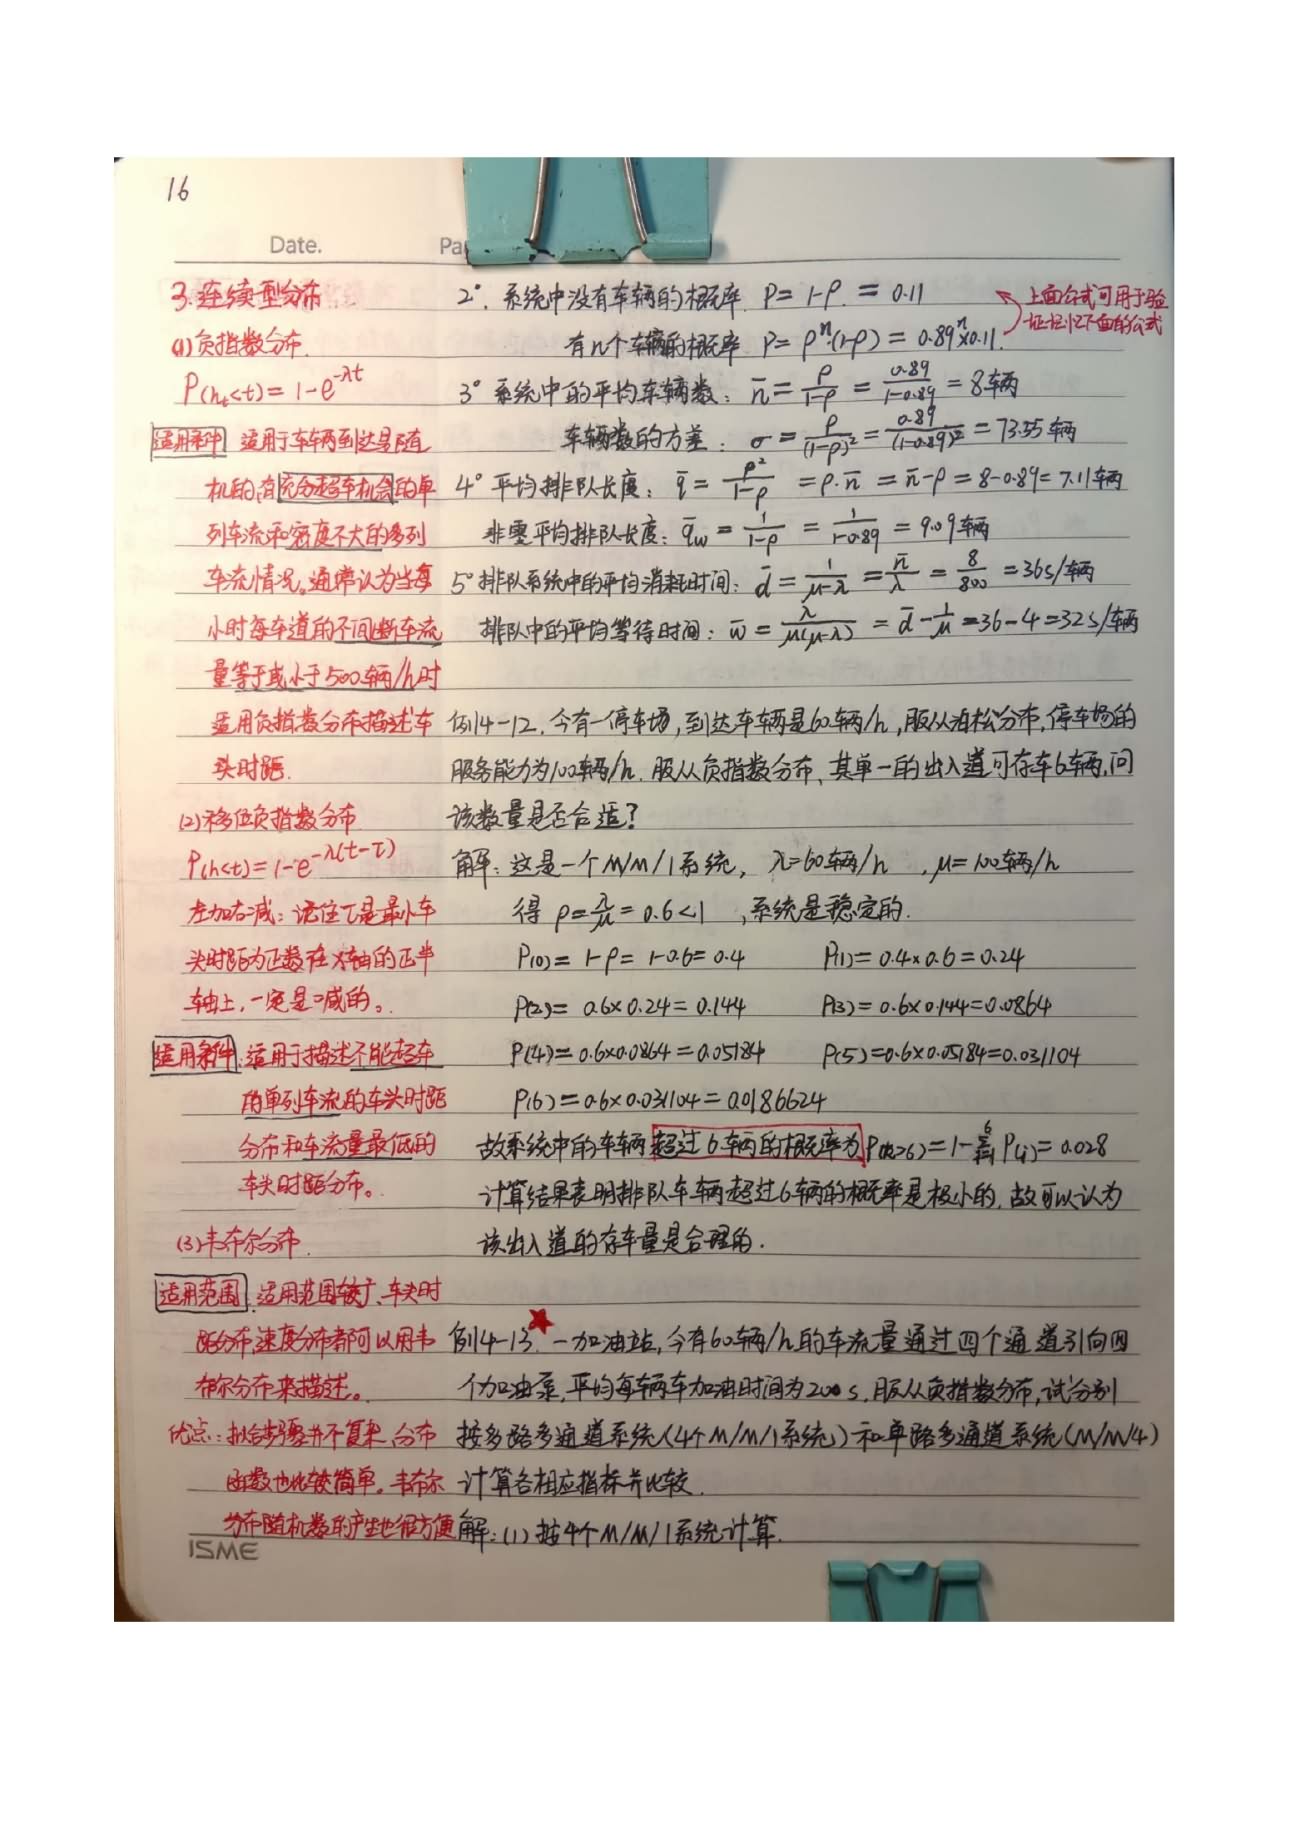 16
Date.
Pa
3.连续型分布
(1)负指数分布.
P(ht<t)=1-e^{-λt}
适用条件 适用于车辆到达是随
机的,有充分超车机会的单
列车流和密度不大的多列
车流情况。通常认为当每
小时每车道的不间断车流
量等于或小于500辆/h时
适用负指数分布描述车
头时距.
(2)移位负指数分布
P(h<t)=1-e^{-λ(t-τ)}
左加右减:记住τ是最小车
头时距为正数在x轴的正半
轴上,一定是减的。
适用条件:适用于描述不能超车
的单列车流的车头时距
分布和车流量最低的
车头时距分布。
(3)韦布尔分布.
适用范围.适用范围较广、车头时
距分布,速度分布都可以用韦
布尔分布来描述。
优点:拟合步骤并不复杂,分布
函数也比较简单。韦布尔
分布随机数的产生也很方便
ISME
2°.系统中没有车辆的概率. P=1-ρ.=0.11
上面公式可用于验
证记忆下面的公式
有n个车辆的概率 P=ρ^n·(1-ρ)=0.89^n×0.11.
3°系统中的平均车辆数: n̄=ρ/(1-ρ)=0.89/(1-0.89)=8辆
车辆数的方差: σ=ρ/(1-ρ)²=0.89/(1-0.89)²=73.55辆
4°平均排队长度: q̄=ρ²/(1-ρ)=ρ·n̄=n̄-ρ=8-0.89=7.11辆
非零平均排队长度: q̄w=1/(1-ρ)=1/(1-0.89)=9.09辆
5°排队系统中的平均消耗时间: d̄=1/(μ-λ)=n̄/λ=8/800=36s/辆
排队中的平均等待时间: w̄=λ/(μ(μ-λ))=d̄-1/μ=36-4=32s/辆
例4-12.今有一停车场,到达车辆是60辆/h,服从泊松分布,停车场的
服务能力为100辆/h.服从负指数分布,其单一的出入道可存车6辆,问
该数量是否合适?
解:这是一个M/M/1系统, λ=60辆/h ,μ=100辆/h
得 ρ=λ/μ=0.6<1 ,系统是稳定的.
P(0)=1-ρ=1-0.6=0.4 P(1)=0.4×0.6=0.24
P(2)=0.6×0.24=0.144 P(3)=0.6×0.144=0.0864
P(4)=0.6×0.0864=0.05184 P(5)=0.6×0.05184=0.031104
P(6)=0.6×0.031104=0.0186624
故系统中的车辆超过6辆的概率为P(n>6)=1-Σ P(i)=0.028
计算结果表明排队车辆超过6辆的概率是极小的,故可以认为
该出入道的存车量是合理的.
例4-13.★一加油站,今有60辆/h的车流量通过四个通道引向四
个加油泵,平均每辆车加油时间为200s,服从负指数分布,试分别
按多路多通道系统(4个M/M/1系统)和单路多通道系统(M/M/4)
计算各相应指标并比较.
解:(1)按4个M/M/1系统计算.